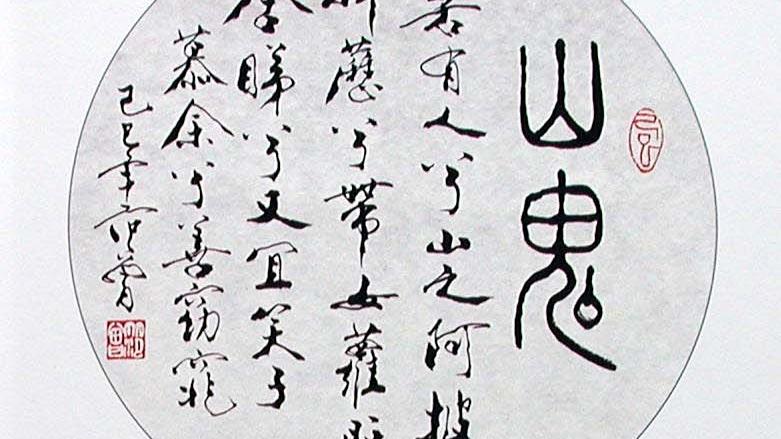 山鬼
若有人兮山之阿披
荔兮帶女蘿既
含睇兮又宜笑子
慕余兮善窈窕
己巳年范曾